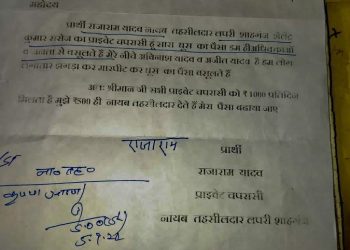 महोदय
प्रार्थी राजाराम यादव नायब तहसीलदार लपरी शाहगंज शैलेंद्र
कुमार सरोज का प्राइवेट चपरासी हूं सारा घूस का पैसा हम ही अधिवक्ताओं
व जनता से वसूलते हैं मेरे नीचे अविनाश यादव व अजीत यादव हैं हम लोग
लगातार झगड़ा कर मारपीट कर घूस का पैसा वसूलते हैं
अतः श्रीमान जी सभी प्राइवेट चपरासी को ₹1000 प्रतिदिन
मिलता है मुझे ₹500 ही नायब तहसीलदार देते हैं मेरा पैसा बढ़ाया जाए
राजाराम
प्रार्थी
राजाराम यादव
प्राइवेट चपरासी
नायब तहसीलदार लपरी शाहगंज
ना० तह०